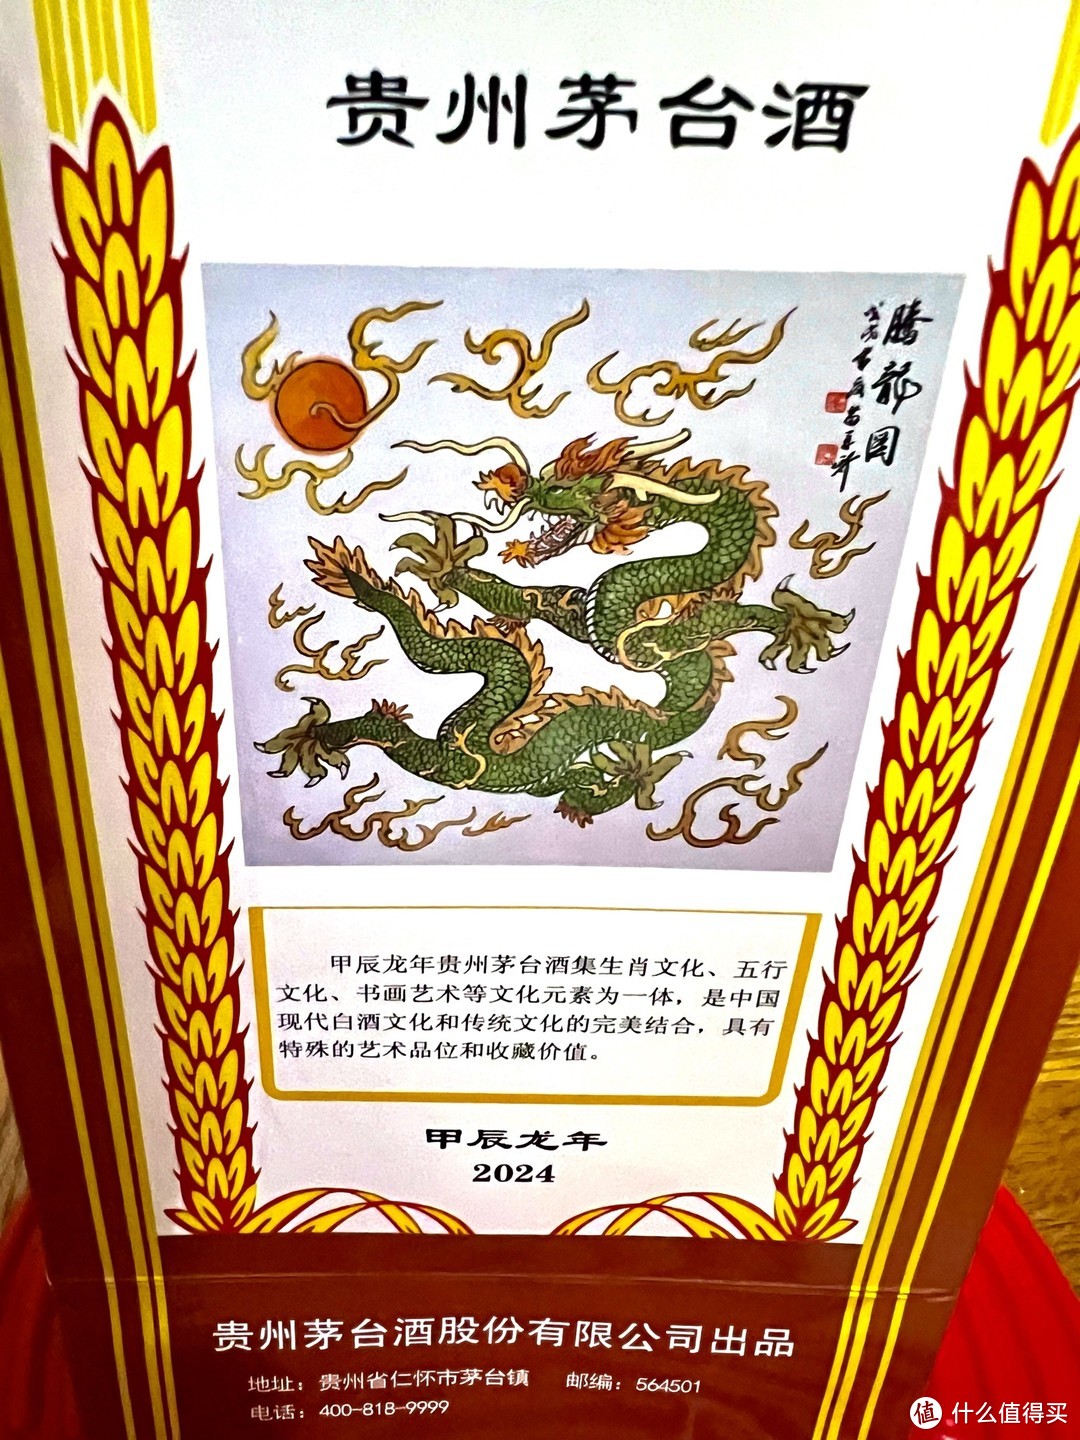 贵州茅台酒
腾龙图
甲辰龙年贵州茅台酒集生肖文化、五行
文化、书画艺术等文化元素为一体，是中国
现代白酒文化和传统文化的完美结合，具有
特殊的艺术品位和收藏价值。
甲辰龙年
2024
贵州茅台酒股份有限公司出品
地址：贵州省仁怀市茅台镇 邮编：564501
电话：400-818-9999
值 什么值得买